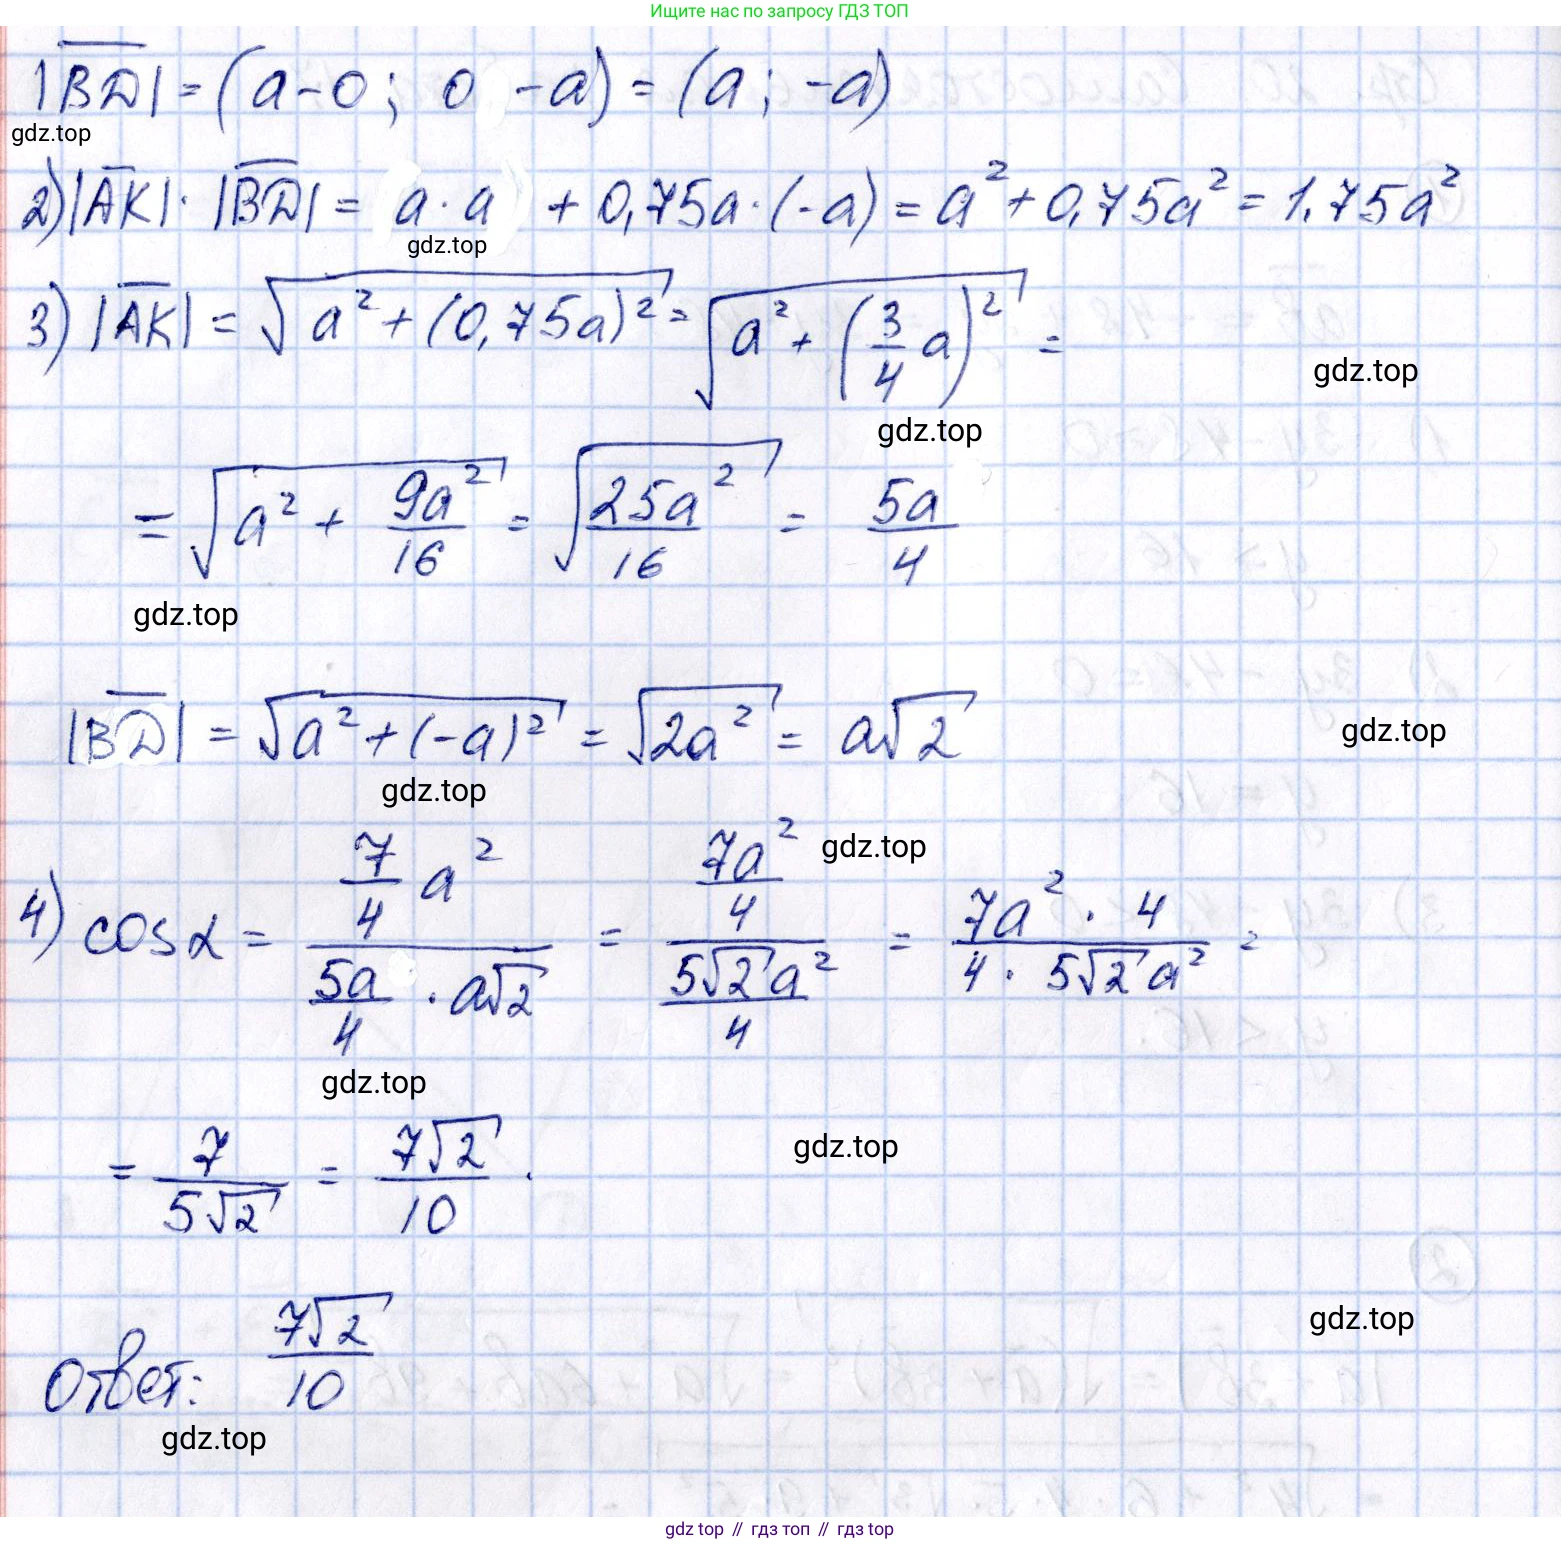 Ищите нас по запросу ГДЗ ТОП
|BD| = (a-0; 0 -a) = (a; -a)
gdz.top
2) |AK| · |BD| = a · a + 0,75a · (-a) = a² + 0,75a² = 1.75a²
gdz.top
3) |AK| = √(a² + (0,75a)²) = √(a² + (3/4 a)²) =
gdz.top
gdz.top
= √(a² + 9a²/16) = √(25a²/16) = 5a/4
gdz.top
|BD| = √(a² + (-a)²) = √(2a²) = a√2
gdz.top
gdz.top
gdz.top
4) cosα = (7/4 a²)/(5a/4 · a√2) = (7a²/4)/(5√2a²/4) = (7a² · 4)/(4 · 5√2a²) =
gdz.top
= 7/(5√2) = 7√2/10.
gdz.top
Ответ: 7√2/10
gdz.top
gdz.top
gdz top // гдз топ // гдз top